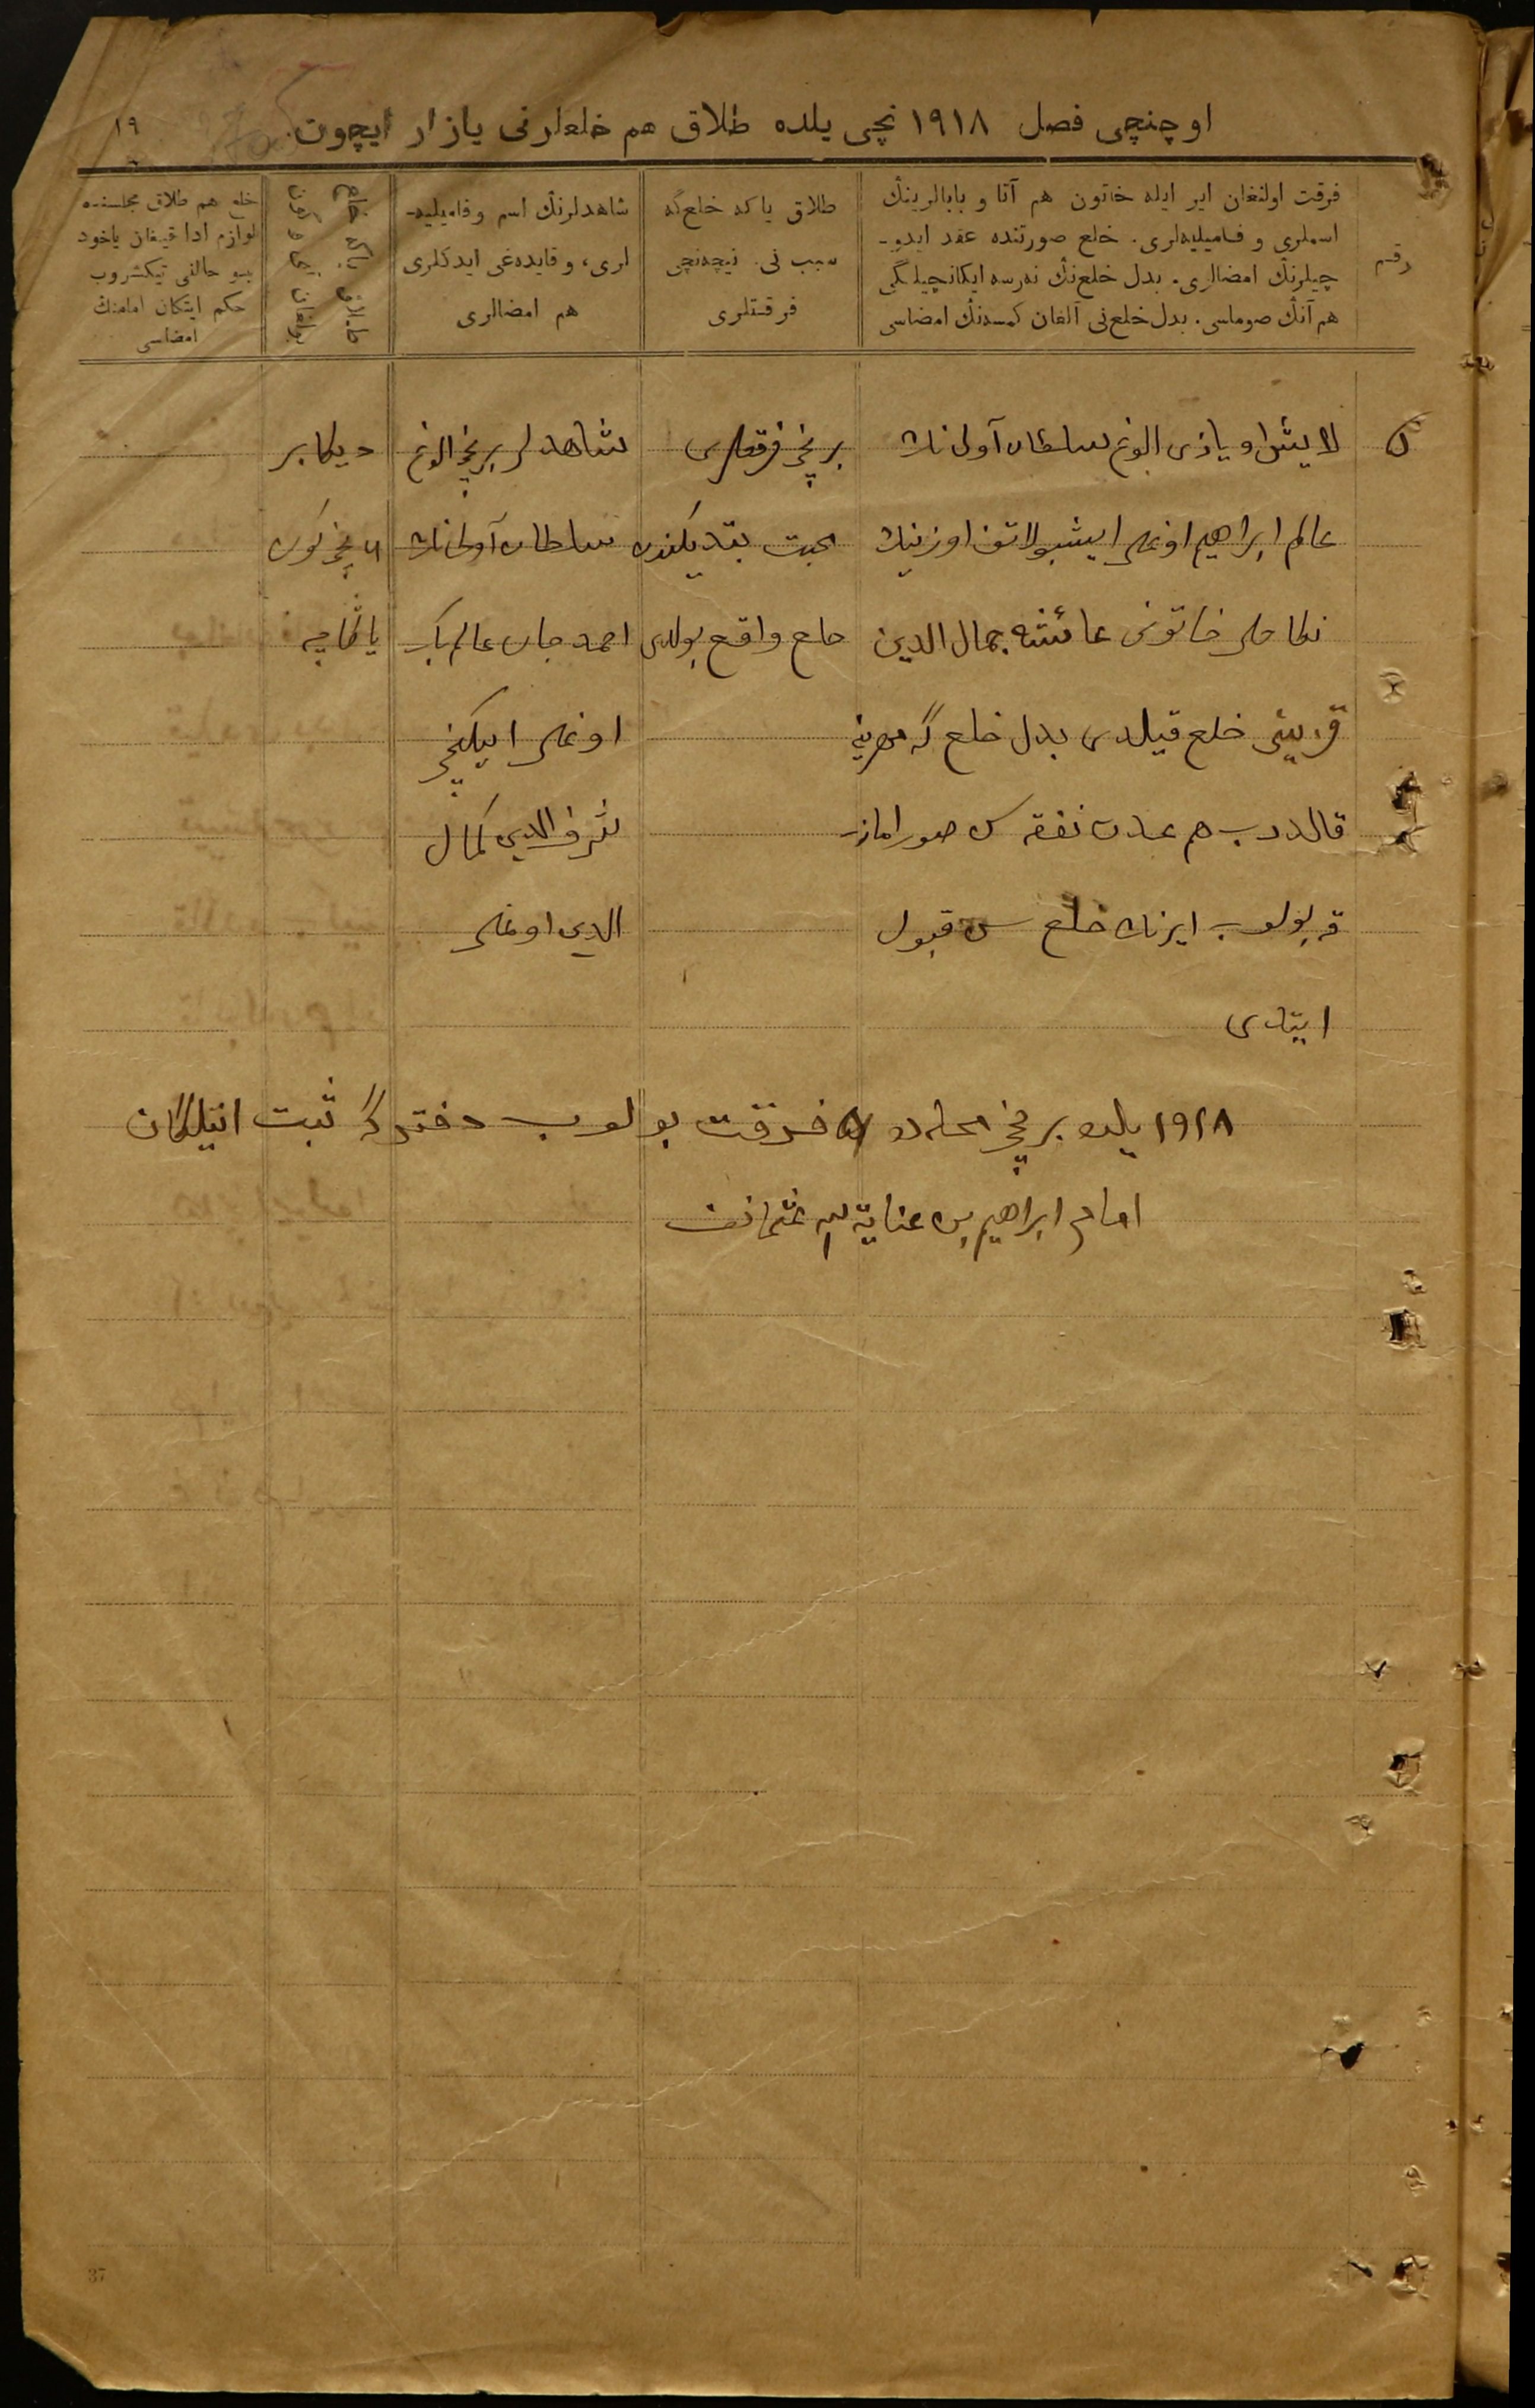 اوچنچی فصل ١٩١٨ نچی یلده طلاق هم خلعلرنی یازار ایچون.
١٩
رقم
فرقت اولنغان ایر ایله خاتون هم آتا و بابالرینڭ
اسملری و فامیلیه‌لری. خلع صورتنده عقد ایدو-
چیلرنڭ امضالری. بدل خلع‌نڭ نه‌رسه ایکانچیلگی
هم آنڭ صوماسی. بدل خلع‌نی آلغان کمسه‌نڭ امضاسی
طلاق یا که خلع‌گه
سبب نی. نیچه‌نچی
فرقتلری
شاهدلرنڭ اسم و فامیلیه-
لری، و قایده‌غی ایدکلری
هم امضالری
طلاق یا که خلع
بولغان آی و کون
خلع هم طلاق مجلسنده
لوازم ادا قیغان یاخود
بو حالنی تیکشروب
حکم ایتکان امامنڭ
امضاسی
۵
لایش اویازی الوغ سلطان آولی نڭ
عالم ابراهیم اوغلی ایشبولاتف اوزینڭ
نکاحلی خاتونی عائشه جمال الدین
قزینی خلع قیلدی بدل خلع گه مهرینه
قالدروب هم عدت نفقه سی صوراماز
قه بولوب ایرنڭ خلع سن قبول
ایتدی
برنچی فرقتلری
محبت بتدیکندن
خلع واقع بولدی
شاهدلر برنچی الوغ
سلطان آولی نڭ
احمد جان عالم بک
اوغلی ایکنچی
شرف الدین کمال
الدین اوغلی
دیکابر
نچی کون
یاڭاچه
١٩١٨ یلده برنچی محله ده ۵ فرقت بولوب دفترگه ثبت ایتلگان
امام ابراهیم بن عنایة الله عثمانف
37